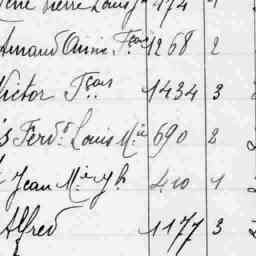 Pierre Louis 174 1
Arnaud Anne Fçois 1268 2
Victor Fçois 1434 3
Ferd.d Louis M.ie 690 2
Jean M.ie Jh 410 1
Alfred 1177 3